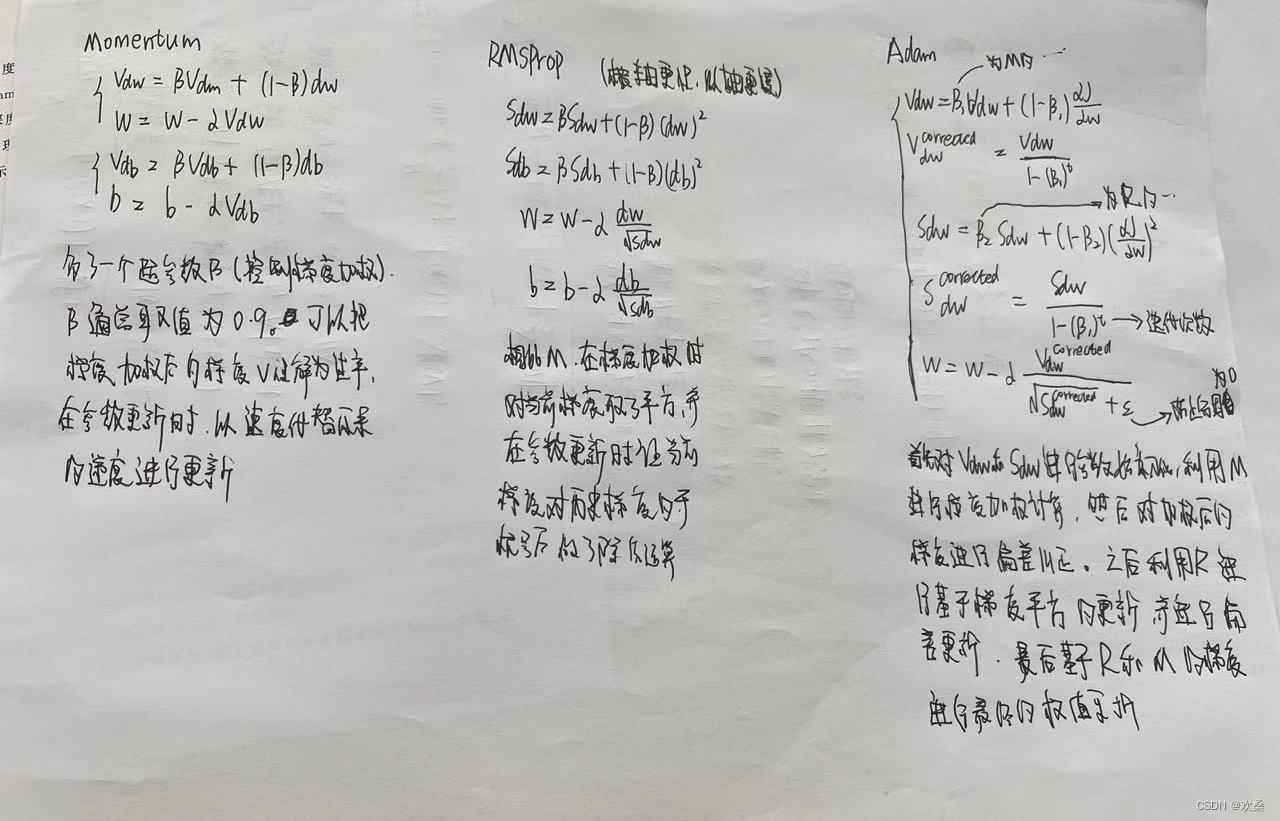 Momentum
Vdw = βVdm + (1-β)dw
W = W - αVdw
Vdb = βVdb + (1-β)db
b = b - αVdb
多了一个超参数β(控制梯度加权).
β通常取值为0.9。可以把
梯度加权后的梯度V理解为速率,
在参数更新时,以速度代替原来
的速度进行更新
RMSProp (横轴更快,纵轴更慢)
Sdw = βSdw + (1-β)(dw)²
Sdb = βSdb + (1-β)(db)²
W = W - α dw/√Sdw
b = b - α db/√Sdb
相比M,在梯度加权时
对当前梯度取了平方,并
在参数更新时让当前
梯度对历史梯度的开
根号后做了除法运算
Adam
为M的…
Vdw = β₁Vdw + (1-β₁) ∂J/∂w
V dw corrected = Vdw/(1-(β₁)^t)
为R的…
Sdw = β₂Sdw + (1-β₂)(∂J/∂w)²
S dw corrected = Sdw/(1-(β₁)^t) → 迭代次数
W = W - α Vdw corrected/(√Sdw corrected + ε) → 防止分母为0
首先对Vdw和Sdw进行参数初始化,利用M
进行梯度加权计算,然后对加权后的
梯度进行偏差纠正。之后利用R进
行基于梯度平方的更新并进行偏
差更新.最后基于R和M的梯度
进行最终的权值更新
度
am
度
理
示
CSDN @欢桑